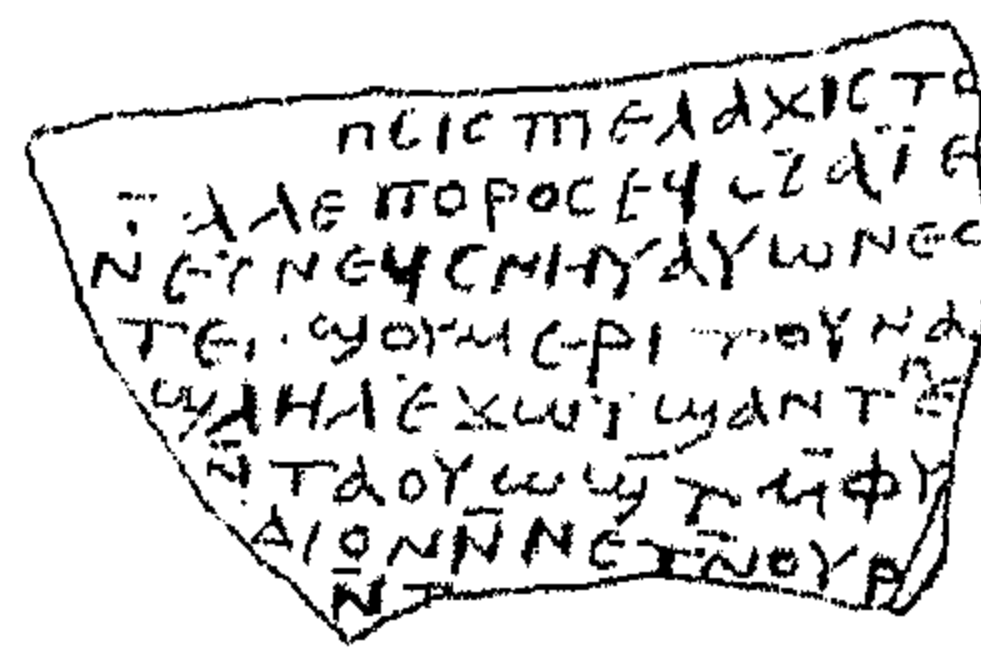 ⲡⲉⲓⲥ ⲡⲓⲉⲗⲁⲭⲓⲥⲧⲟ
ⲁⲗⲉⲡⲟⲣⲟⲥⲉϥ
ⲛⲉϥⲥⲛⲏⲩⲁⲩⲱⲛⲉⲥ
ϣⲟⲩⲙⲉⲣⲓⲧⲟⲩⲛⲁ
ϣⲗⲏⲗⲉϫⲱⲓϣⲁⲛⲧⲉ
ⲛ̄ⲧⲁⲟⲩⲱϣⲧⲙ̄ⲫⲩ
ⲇⲓⲟⲛⲛ̄ⲛⲉⲧⲛ̄ⲟⲩⲣ
ⲛ̄ⲧ